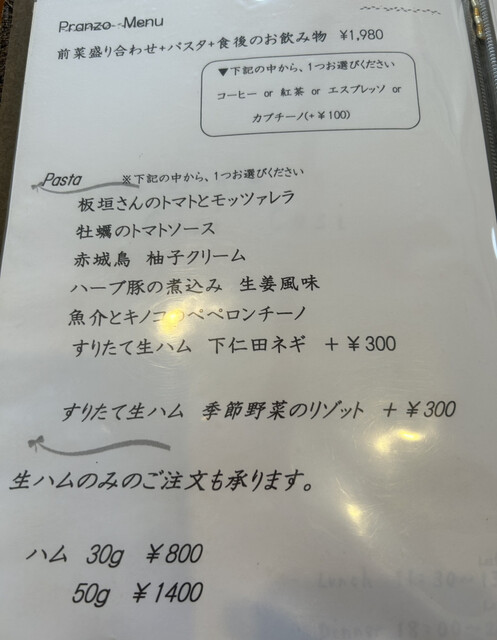 Pranzo Menu
前菜盛り合わせ+パスタ+食後のお飲み物 ¥1,980
▼下記の中から、1つお選びください
コーヒー or 紅茶 or エスプレッソ or
カプチーノ(+¥100)
Pasta ※下記の中から、1つお選びください
板垣さんのトマトとモッツァレラ
牡蠣のトマトソース
赤城鳥 柚子クリーム
ハーブ豚の煮込み 生姜風味
魚介とキノコのペペロンチーノ
すりたて生ハム 下仁田ネギ +¥300
すりたて生ハム 季節野菜のリゾット +¥300
生ハムのみのご注文も承ります。
ハム 30g ¥800
50g ¥1400